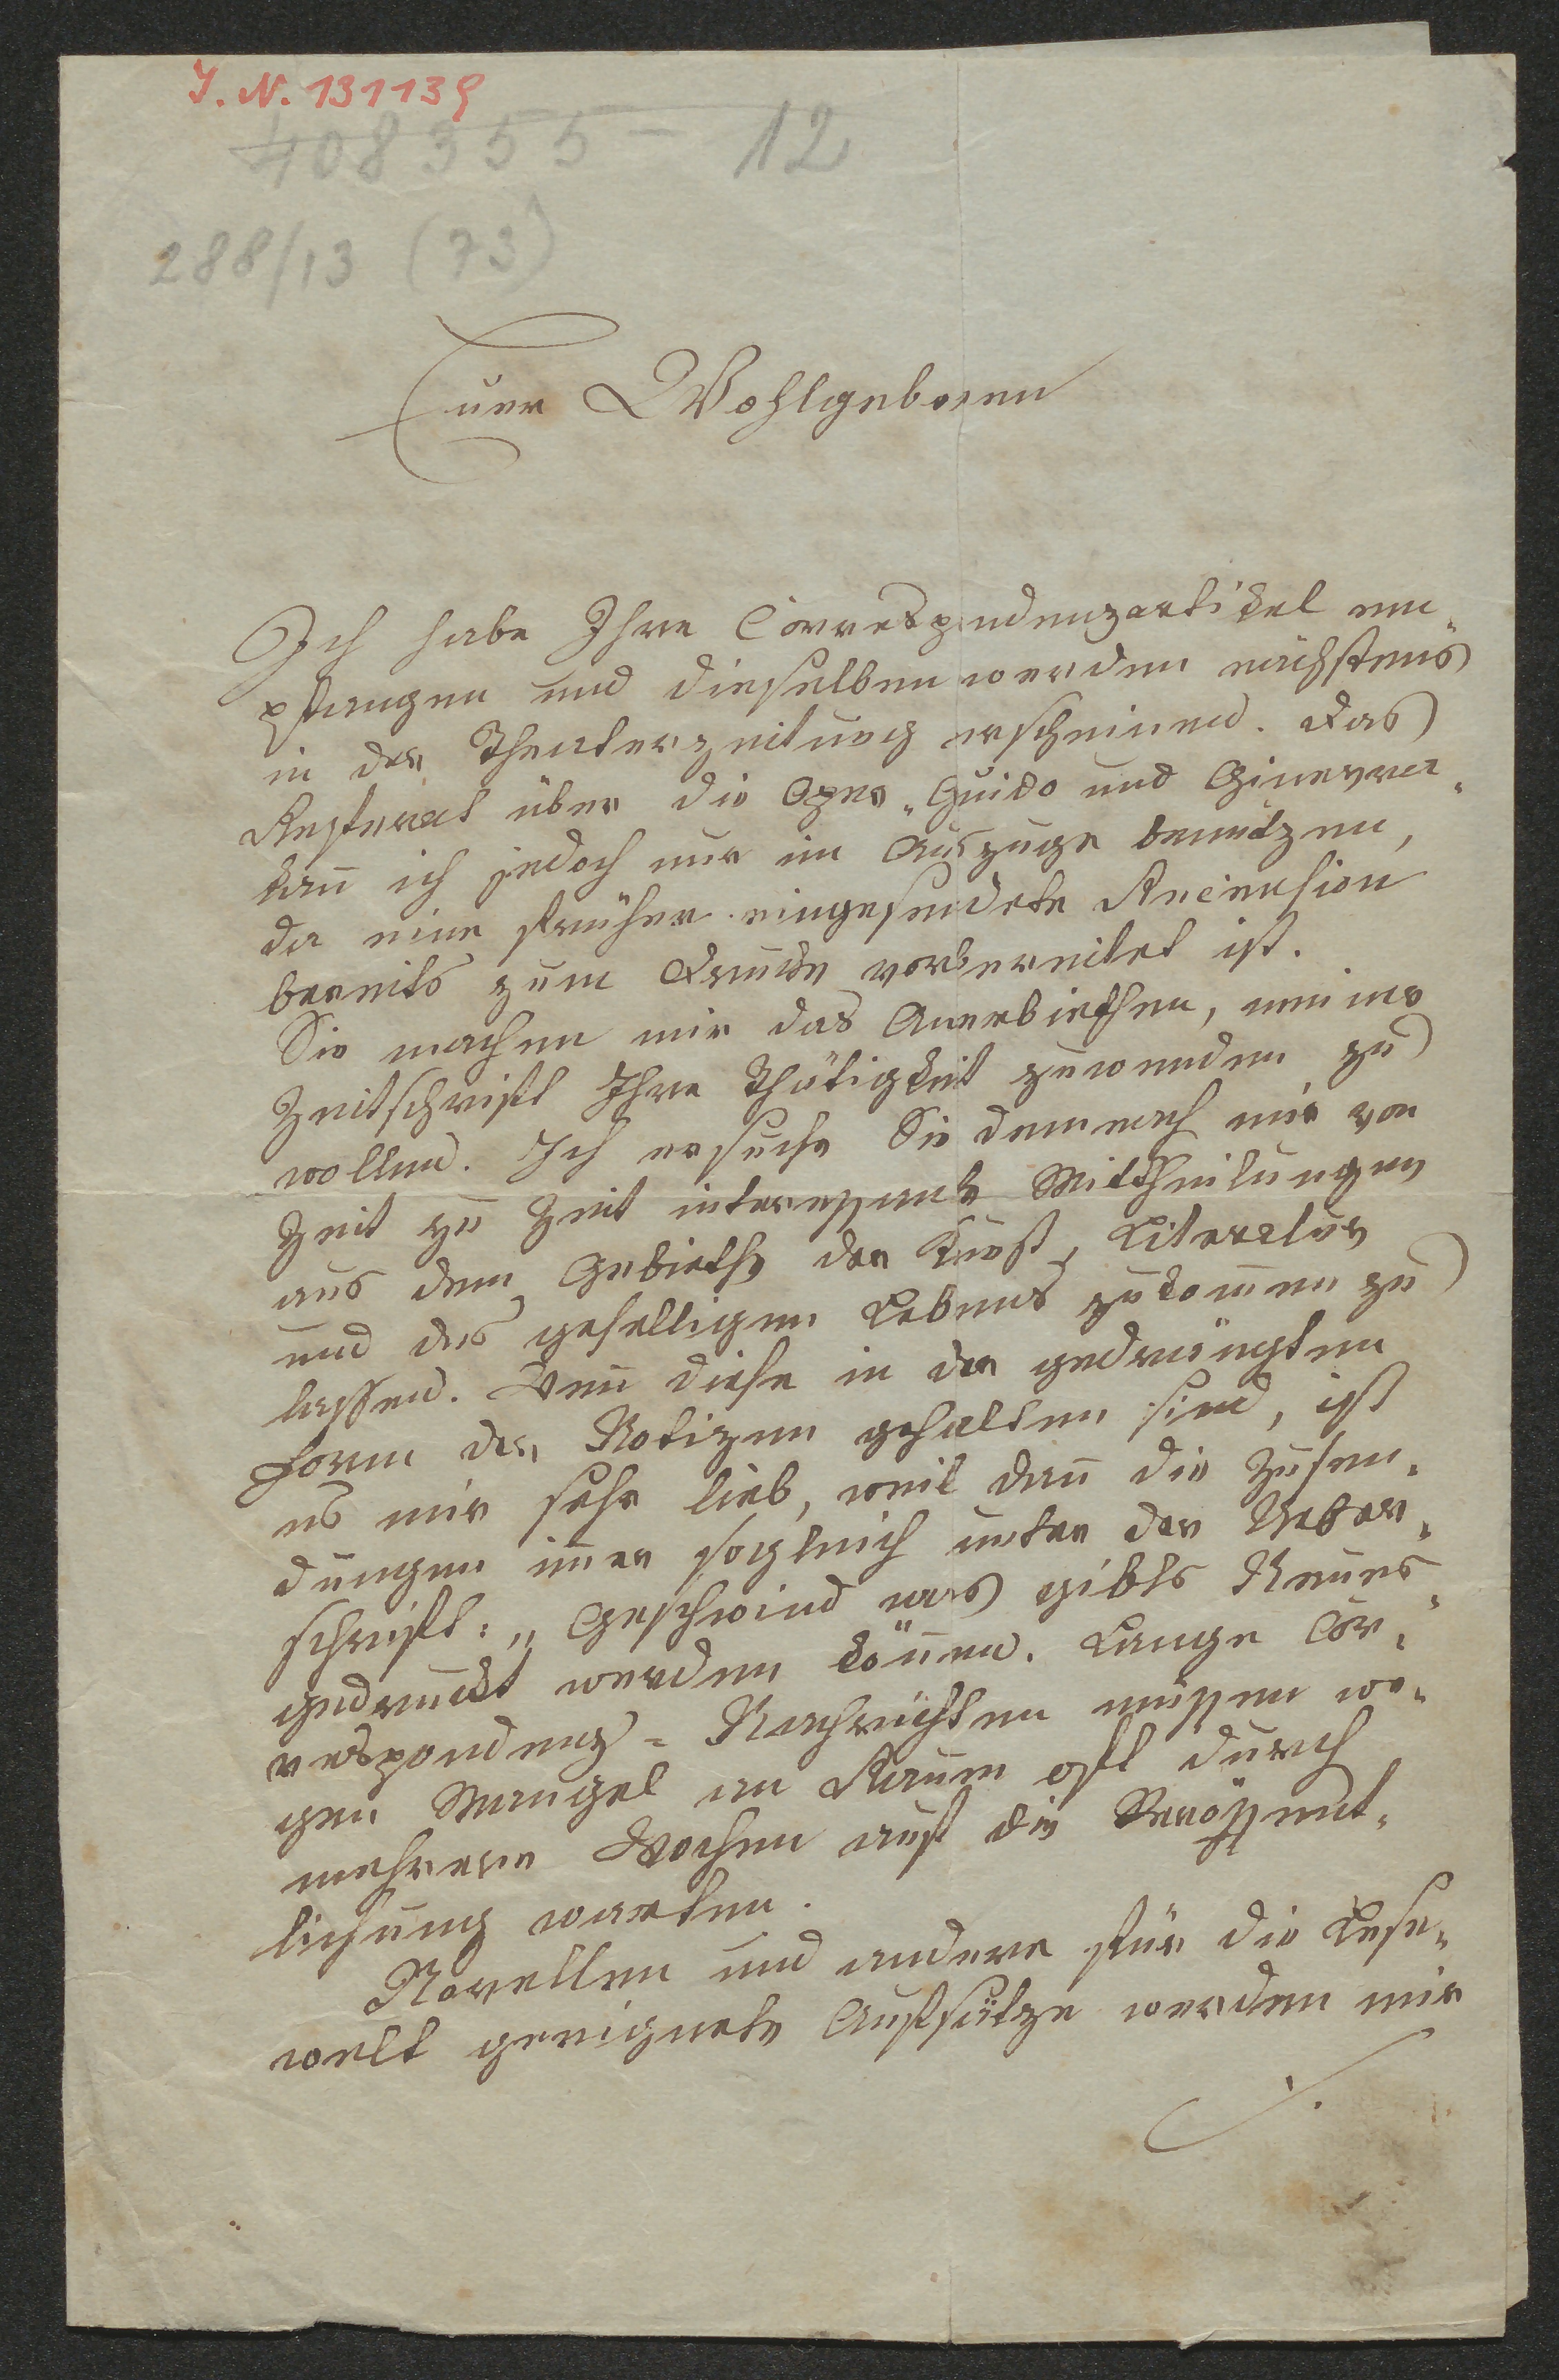 I. N. 131139
408355-12
288/13 (73)
Euer Wohlgeboren
Ich habe Ihre Correspondenzartikel em¬
pfangen und dieselben werden nächstens
in der Theaterzeitung erscheinen. Das
Referat über die Oper „Guido und Ginevra"
kañ ich jedoch nur im Auszuge benützen,
da eine früher eingesendete Recension
bereits zum Drucke vorbereitet ist.
Sie machen mir das Anerbiethen, meiner
Zeitschrift Ihre Thätigkeit zuwenden zu
wollen. Ich ersuche Sie demnach mir von
Zeit zu Zeit interessante Mittheilungen
aus dem Gebiethe der Kunst, Literatur
und des geselligen Lebens zukom̄en zu
lassen. Weñ diese in der gedrängten
Form der Notizen gehalten sind, ist
es mir sehr lieb, weil dañ die Zusen¬
dungen im̄er sogleich unter der Ueber¬
schrift: „Geschwind was gibts Neues"
gedruckt werden köñen. Lange Cor¬
respondenz-Nachrichten müssen we¬
gen Mangel an Raum oft durch
mehrere Wochen auf die Veröffent¬
lichung warten.
Novellen und andere für die Lese¬
welt geeignete Aufsätze werden mir